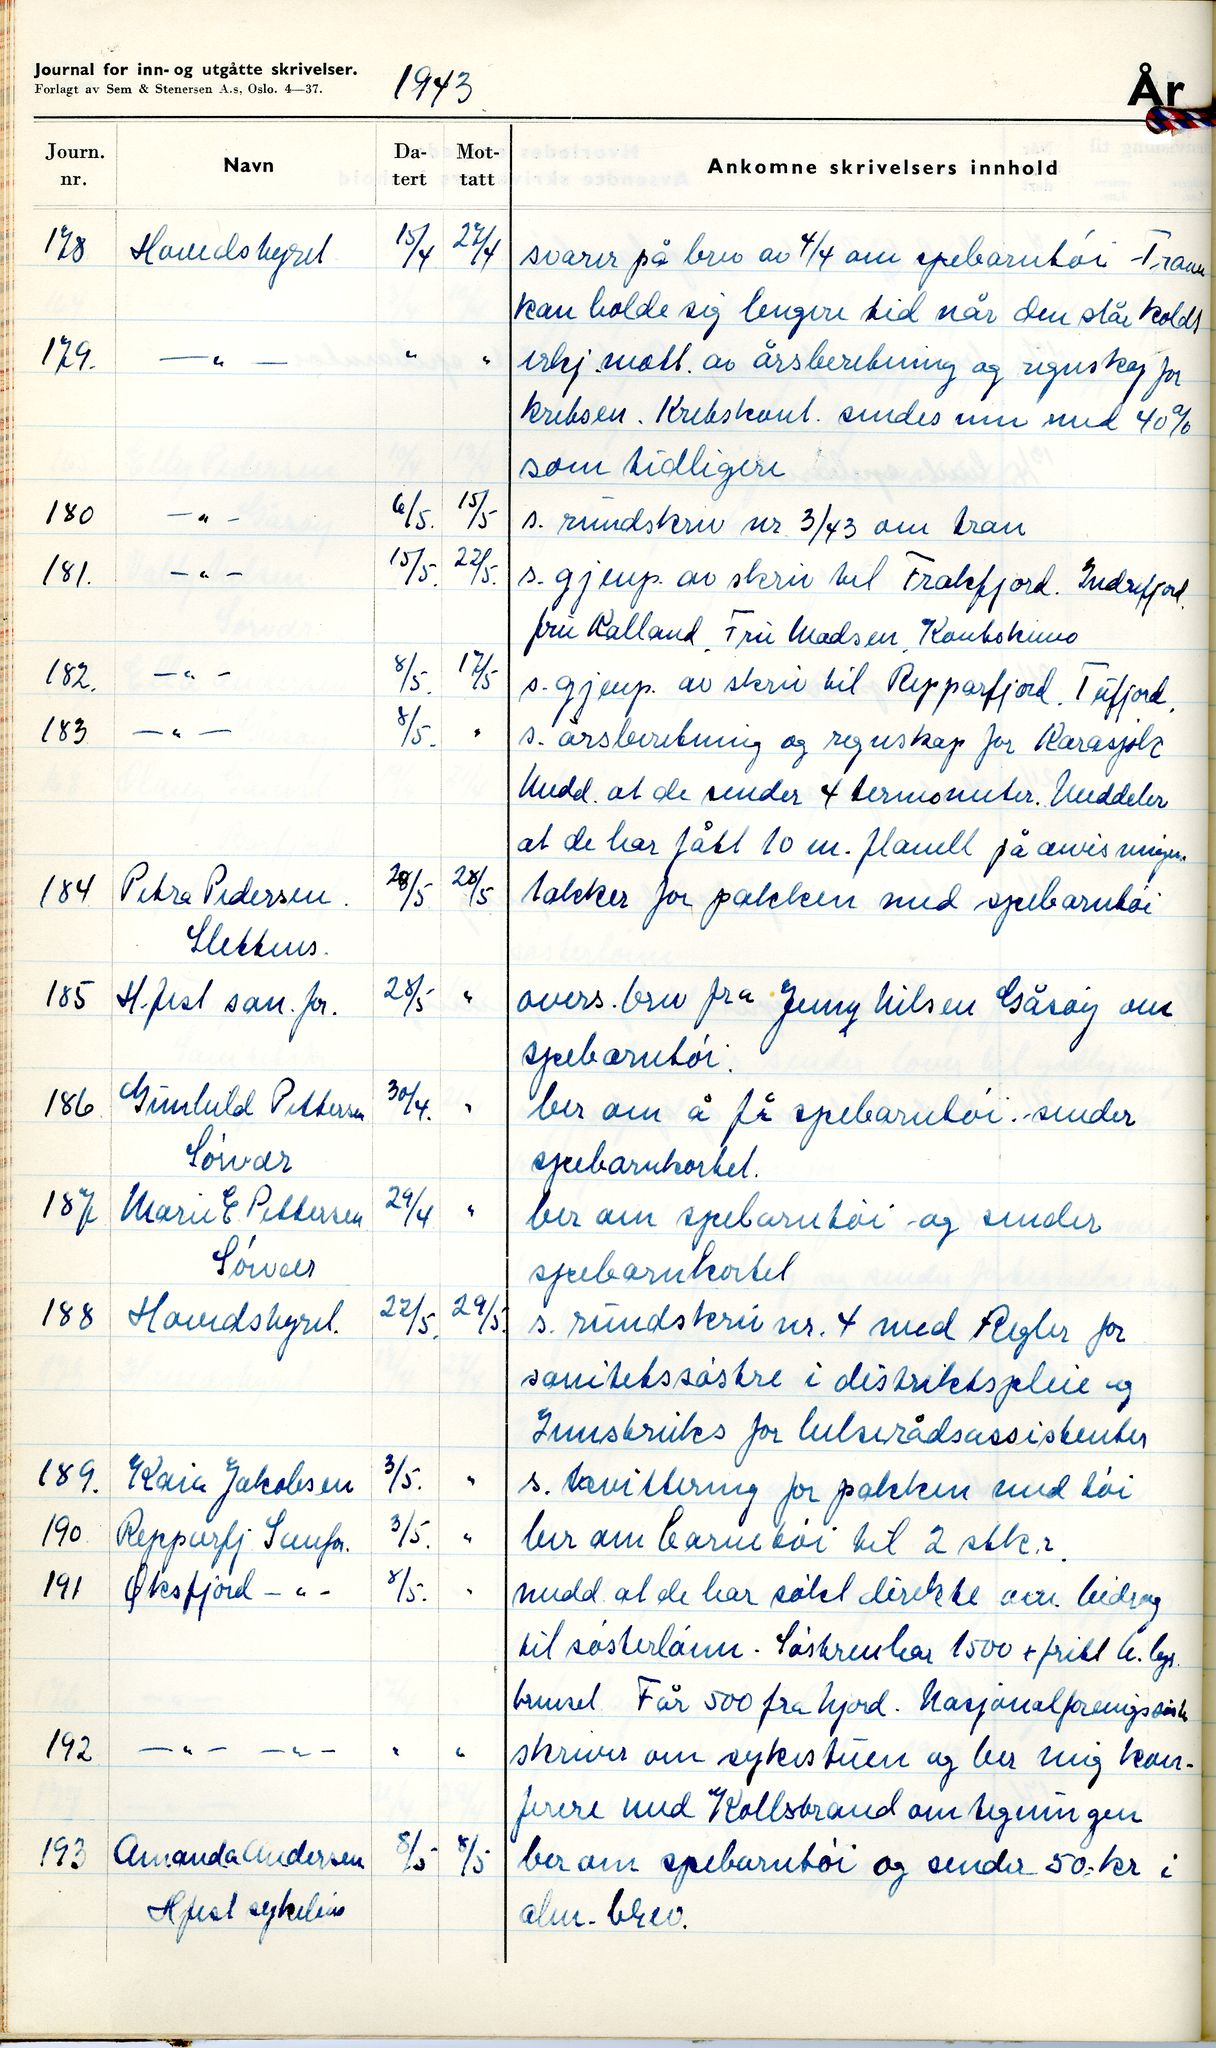 Journal for inn- og utgåtte skrivelser. 1943 År
Forlagt av Sem & Stenersen A.s, Oslo. 4—37.
Journ. nr. Navn Da-tert Mot-tatt Ankomne skrivelsers innhold
178 Hovedstyret 15/4 27/4 svarer på brev av 4/4 om spebarntöi - Tranen
kan holde sig lengere tid når den står koldt
179. — " — " " erkj. mott. av årsberetning og regnskap for
krebsen. Krebskont. sendes inn med 40%
som tidligere
180 — " — 6/5. 15/5 s. rundskriv nr 3/43 om tran
181. — " — 15/5. 22/5. s. gjenp. av skriv til Frakfjord. Indrefjord.
fru Kalland, Fru Madsen, Kautokeino
182. — " — 8/5. 17/5 s. gjenp. av skriv til Repparfjord. Tufjord.
183 — " — 8/5. " s. årsberetning og regnskap for Karasjok
Medd. at de sender 4 termometer. Meddeler
at de har fått 10 m. flanell på anvisningen.
184 Petra Pedersen. 28/5 28/5 takker for pakken med spebarntöi
Slettnes.
185 H.fest san. for. 28/5 " overs. brev fra Jenny Nilsen Gåsöy om
spebarntöi.
186 Gunhild Pettersen 30/4. " ber om å få spebarntöi. - sender
Sörvær spebarnkortet.
187 Marie E Pettersen 29/4 " ber om spebarntöi - og sender
Sörvær spebarnkortet
188 Hovedstyret. 22/5. 29/5. s. rundskriv nr. 4 med Regler for
sanitetssöstre i distriktspleie og
Innstruks for helserådsassistenter
189. Kaia Jakobsen 3/5. " s. kvittering for pakken med töi
190 Repparfj Sanfor. 3/5. " ber om barnetöi til 2 stk.
191 Øksfjord — " — 8/5. " medd. at de har sökt direkte om bidrag
til sösterlönn. Söstren har 1500 + fritt h. lys.
brensel Får 500 fra hjord. Nasjonalforenigs
192 — " — — " — " " skriver om sykestuen og ber mig kon-
ferere med Kollstrand om tegningen
193 Amanda Andersen 8/5 8/5 ber om spebarntöi og sender 50.-kr i
Hfest sykehus alm. brev.